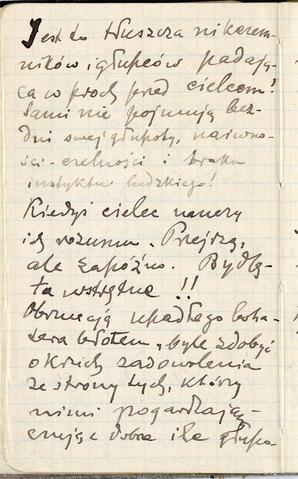 Jest to tłuszcza nikczem-
ników i głupców padają-
ca w proch przed cielcem!
Sami nie pojmują bez-
dni swej głupoty, naiwno-
ści czelności i braku
instynktu ludzkiego!
Kiedyś cielec nauczy
ich rozumu. Przejrzą,
ale zapóźno. Bydlę-
ta wstrętne!!
Obrzucają upadłego boha-
tera błotem, byle zdobyć
okruch zadowolenia
ze strony tych, którzy
nimi pogardzają,
dobrze ile głupo